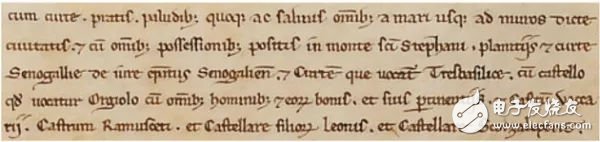 cum curte. pratis. paludib; quoq; ac saluis omĩb; a mari usq; ad muros dicte
ciuitatis. ⁊ cũ omĩb; possessionib; positis in monte sc̃i Stephani. planitijs ⁊ curte
Senogallie de iure ep̃atus Senogalien̄. ⁊ Curtem que uocat᷑ Tresbasilice. cũ castello
qđ uocatur Orgiolo cũ omĩb; hominib; ⁊ eoꝝ bonis. et suis
tii. Castrum Ramusceti. et Castellare filioꝝ Leonis. et Castellar
电子发烧友
www.elecfans.com